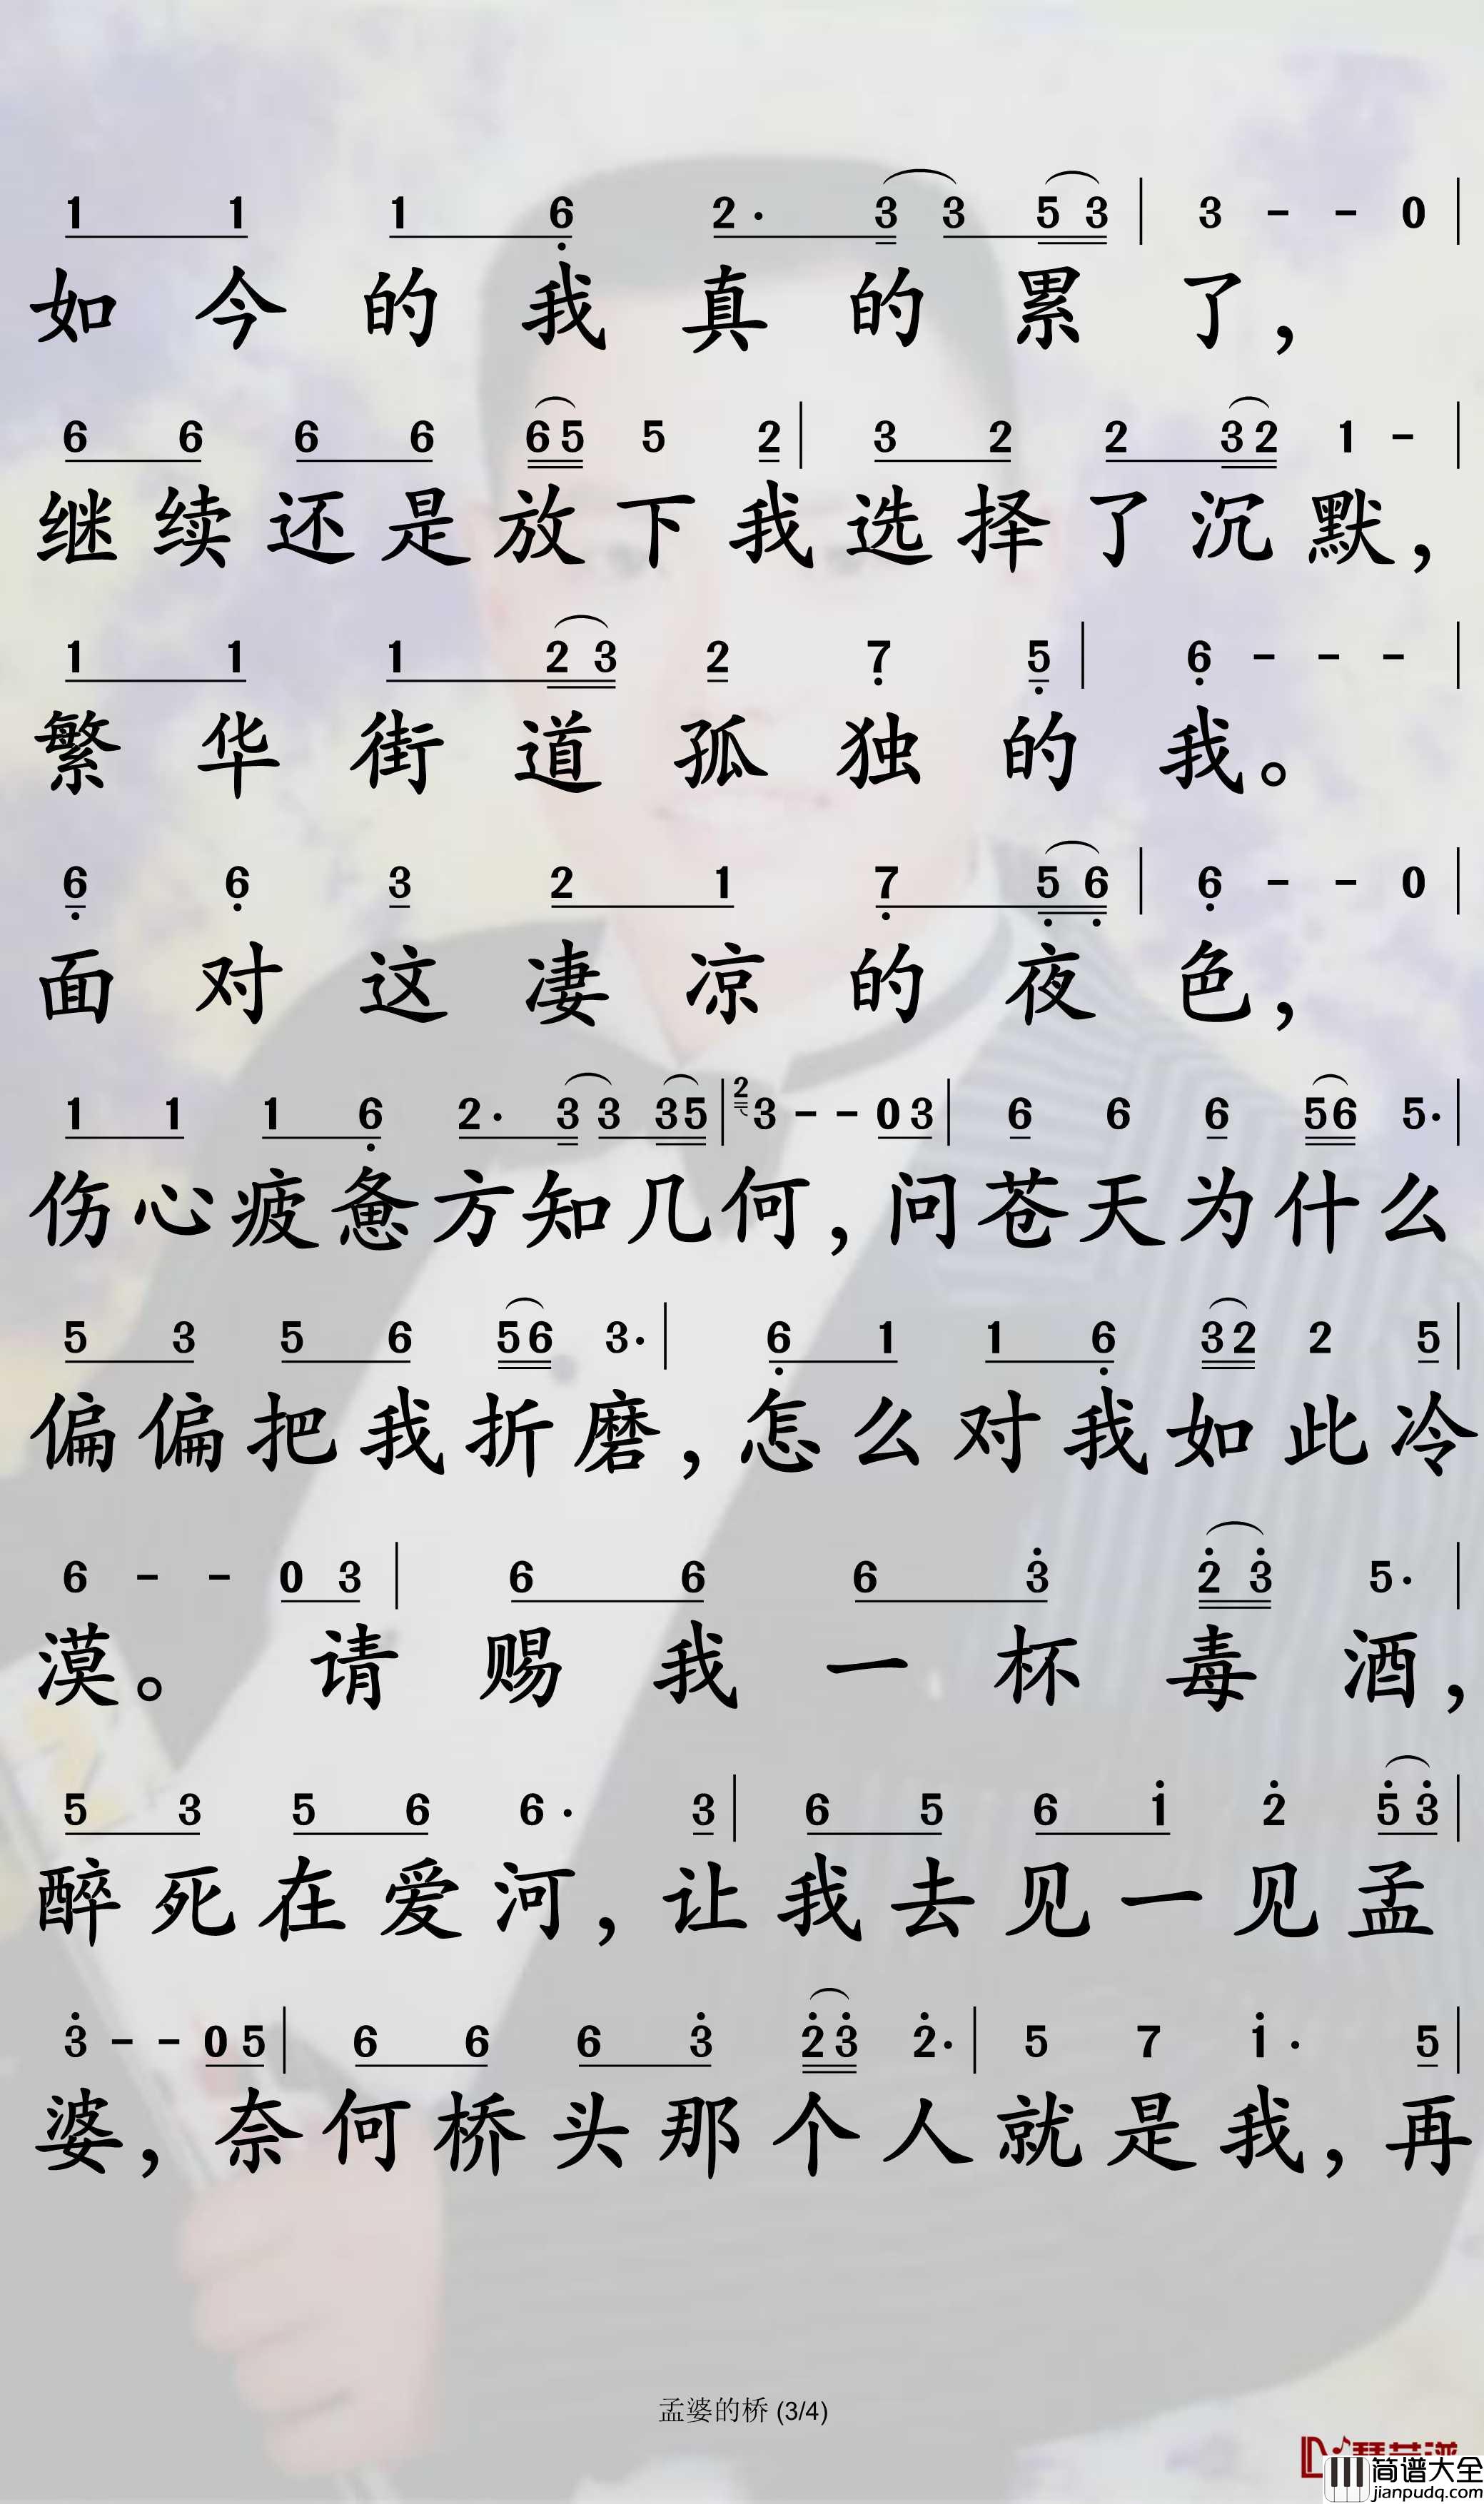 1 1 1 6 2· 3 3 5 3 | 3 - - 0 |
如今的我真的累了，
6 6 6 6 6 5 5 2 | 3 2 2 3 2 1 - |
继续还是放下我选择了沉默，
1 1 1 2 3 2 7 5 | 6 - - - |
繁华街道孤独的我。
6 6 3 2 1 7 5 6 | 6 - - 0 |
面对这凄凉的夜色，
1 1 1 6 2· 3 3 3 5 | 2 3 - - 0 3 | 6 6 6 5 6 5· |
伤心疲惫方知几何，问苍天为什么
5 3 5 6 5 6 3· | 6 1 1 6 3 2 2 5 |
偏偏把我折磨，怎么对我如此冷
6 - - 0 3 | 6 6 6 3 2 3 5· |
漠。请赐我一杯毒酒，
5 3 5 6 6· 3 | 6 5 6 1 2 5 3 |
醉死在爱河，让我去见一见孟
3 - - 0 5 | 6 6 6 3 2 3 2· | 5 7 1· 5 |
婆，奈何桥头那个人就是我，再
孟婆的桥 (3/4)
简谱大全
jianpudq.com